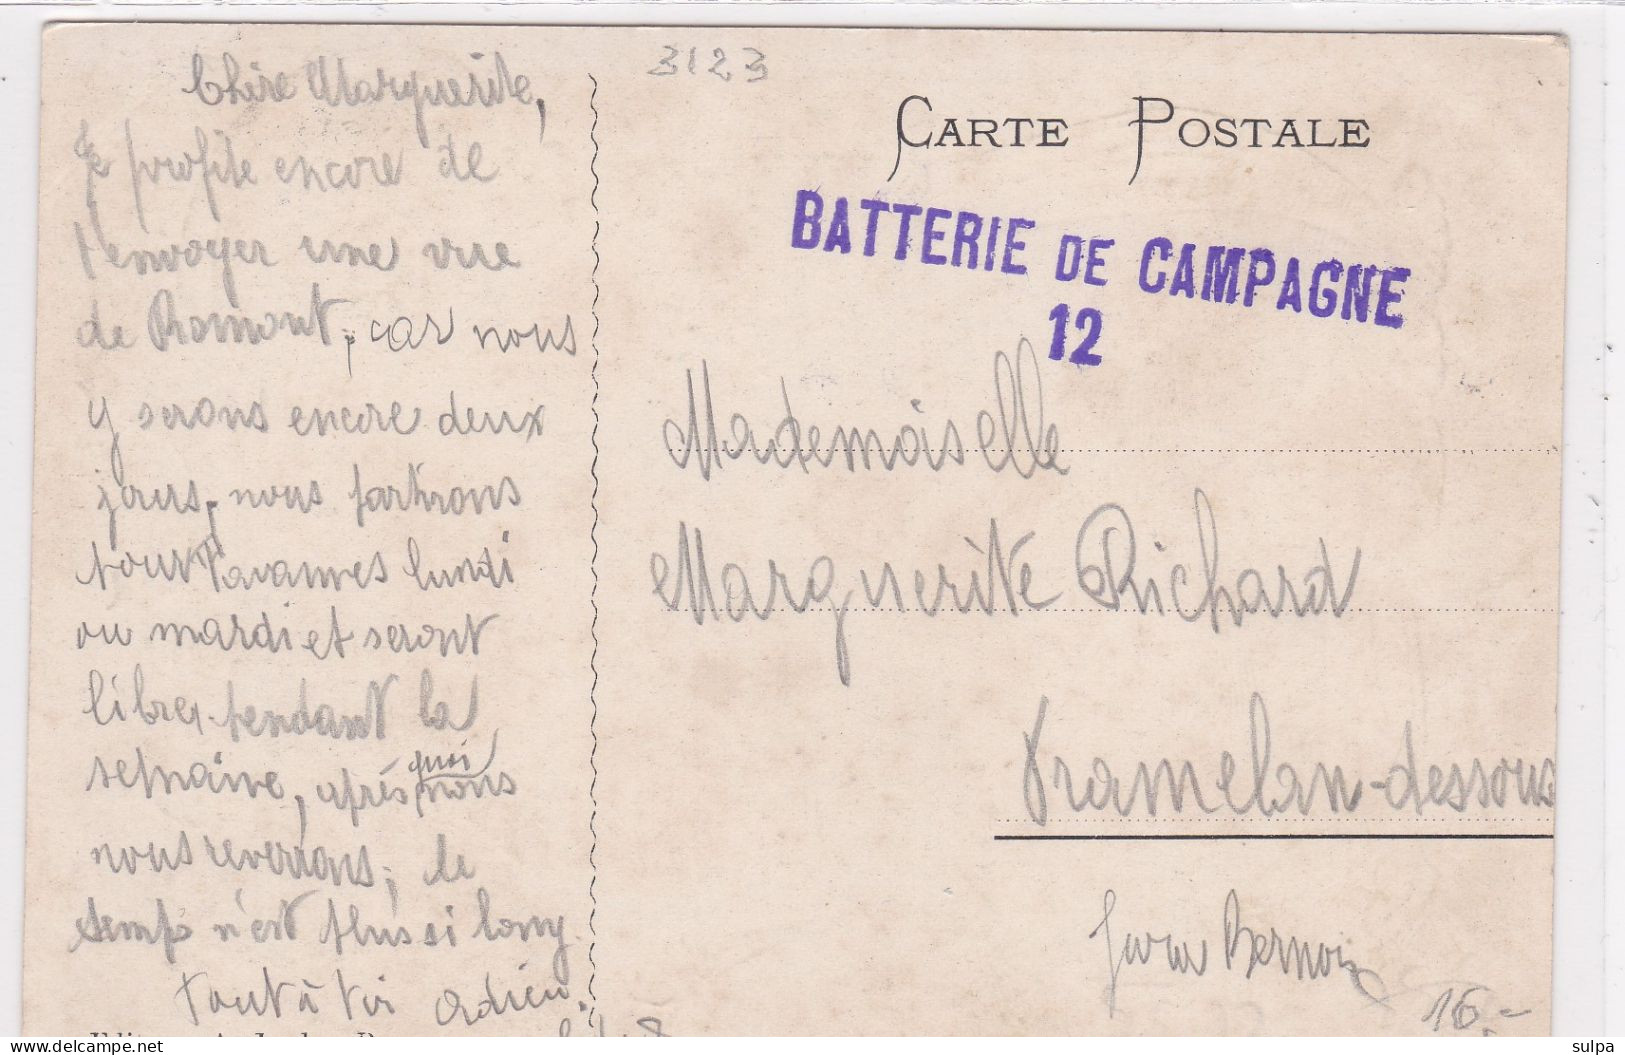 3123
Chère Marguerite,
Je profite encore de
t'envoyer une vue
de Romont, car nous
y serons encore deux
jours, nous partirons
pour Tavannes lundi
ou mardi et seront
libres pendant la
semaine, après quoi nous
nous reverrons; le
temps n'est plus si long.
Tout à toi adieu.
CARTE POSTALE
BATTERIE DE CAMPAGNE
12
Mademoiselle
Marguerite Richard
Tramelan-dessous
Jura Bernois
16.-
sulpa
delcampe.net